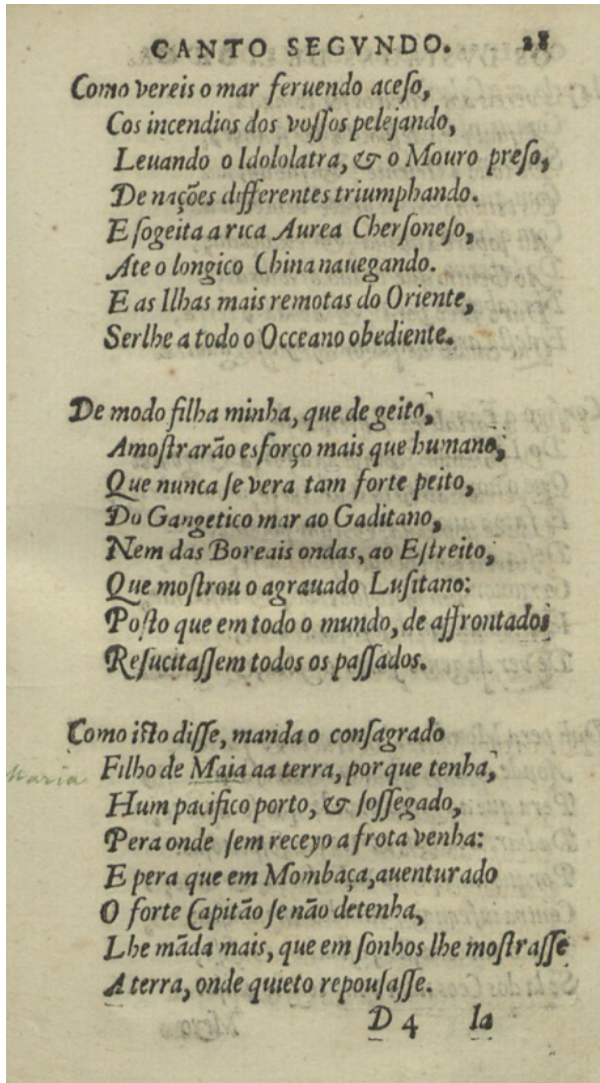 CANTO SEGVNDO. 28
Como vereis o mar feruendo aceſo,
Cos incendios dos voſſos pelejando,
Leuando o Idololatra, & o Mouro preſo,
De nações differentes triumphando.
E ſogeita a rica Aurea Cherſoneſo,
Ate o longico China nauegando.
E as Ilhas mais remotas do Oriente,
Serlhe a todo o Occeano obediente.
De modo filha minha, que de geito,
Amoſtrarão esforço mais que humano,
Que nunca ſe vera tam forte peito,
Do Gangetico mar ao Gaditano,
Nem das Boreais ondas, ao Eſtreito,
Que moſtrou o agrauado Luſitano:
Poſto que em todo o mundo, de affrontados
Reſucitaſſem todos os paſſados.
Como iſto diſſe, manda o conſagrado
Maria Filho de Maia aa terra, por que tenha,
Hum pacifico porto, & ſoſſegado,
Pera onde ſem receyo a frota venha:
E pera que em Mombaça, auenturado
O forte Capitão ſe não detenha,
Lhe mãda mais, que em ſonhos lhe moſtraſſe
A terra, onde quieto repouſaſſe.
D 4 Ia